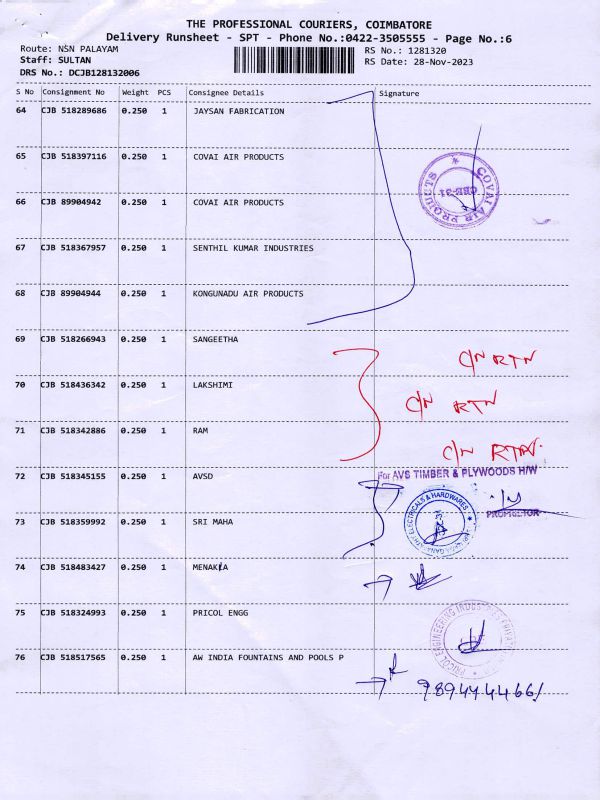 THE PROFESSIONAL COURIERS, COIMBATORE
Delivery Runsheet - SPT - Phone No.:0422-3505555 - Page No.:6
Route: NSN PALAYAM RS No.: 1281320
Staff: SULTAN RS Date: 28-Nov-2023
DRS No.: DCJB128132006
S No Consignment No Weight PCS Consignee Details Signature
64 CJB 518289686 0.250 1 JAYSAN FABRICATION
65 CJB 518397116 0.250 1 COVAI AIR PRODUCTS
COVAI AIR PRODUCTS
CBE-31
66 CJB 89904942 0.250 1 COVAI AIR PRODUCTS
67 CJB 518367957 0.250 1 SENTHIL KUMAR INDUSTRIES
68 CJB 89904944 0.250 1 KONGUNADU AIR PRODUCTS
69 CJB 518266943 0.250 1 SANGEETHA C/N RTN
70 CJB 518436342 0.250 1 LAKSHIMI C/N RTN
71 CJB 518342886 0.250 1 RAM C/N RTN.
72 CJB 518345155 0.250 1 AVSD For AVS TIMBER & PLYWOODS H/W
PROPRIETOR
ELECTRICALS & HARDWARES
73 CJB 518359992 0.250 1 SRI MAHA
74 CJB 518483427 0.250 1 MENAKA
75 CJB 518324993 0.250 1 PRICOL ENGG
PRICOL ENGINEERING INDUSTRIES PRIVATE
76 CJB 518517565 0.250 1 AW INDIA FOUNTAINS AND POOLS P